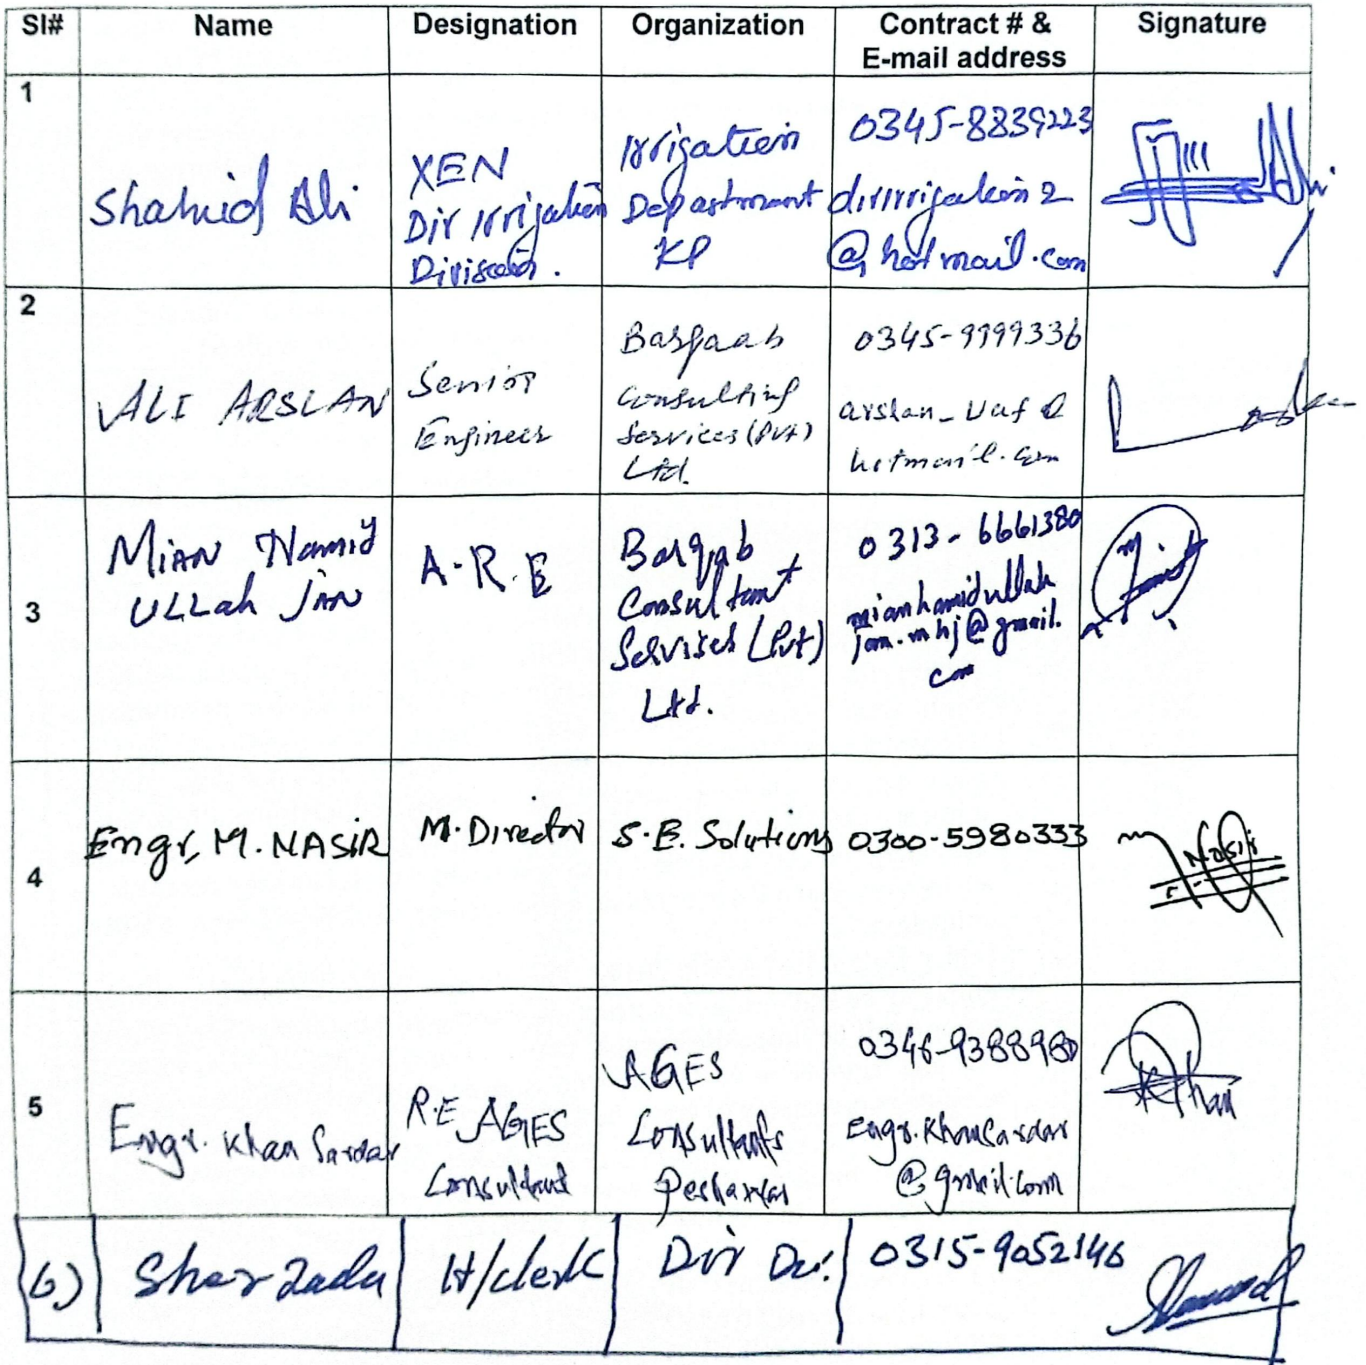 Sl# Name Designation Organization Contract # & Signature
E-mail address
1
Shahid Ali
XEN
Dir Irrigation
Division.
Irrigation
Department
KP
0345-8839223
dirirrigation2
@hotmail.com
2
ALI ARSLAN
Senior
Engineer
Barqaab
Consulting
Services (Pvt)
Ltd.
0345-9999336
arslan_uaf@
hotmail.com
3
MIAN Hamid
ULLah JAN
A.R.E
Barqab
Consultant
Services (Pvt)
Ltd.
0313-6661380
mianhamidullah
jan.mhj@gmail.
com
4
Engr, M. NASIR
M. Director
S.E. Solutions
0300-5980333
Nasir
5
Engr. Khan Sardar
R.E AGES
Consultant
AGES
Consultants
Peshawar
0346-9388980
Engr.KhanSardar
@gmail.com
Khan
6)
Sherzada
H/clerk
Dir Dv.
0315-9052146